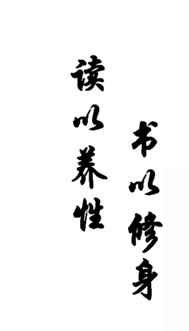 读以养性
书以修身